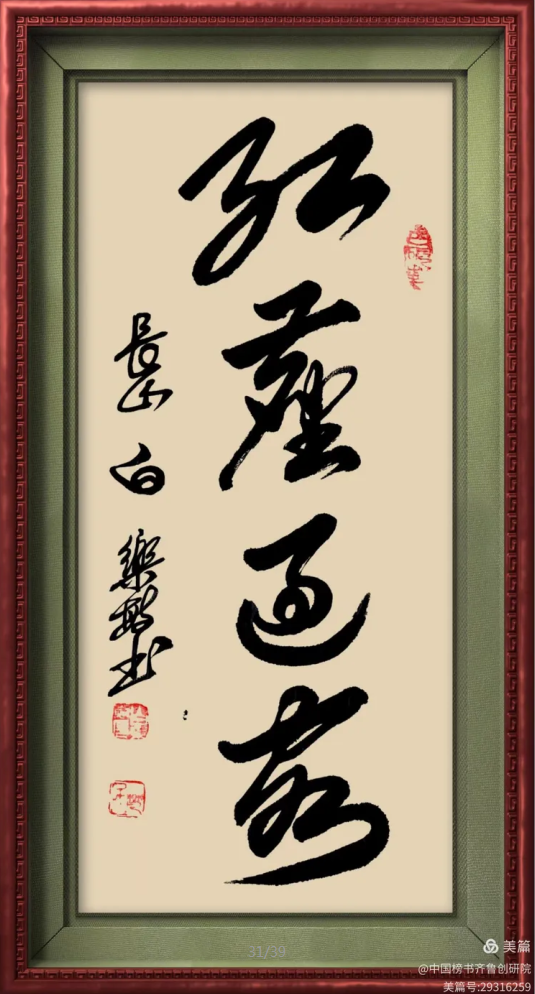 红尘过客
長山 白樂
31/39
美篇
@中国榜书齐鲁创研院
美篇号:29316259